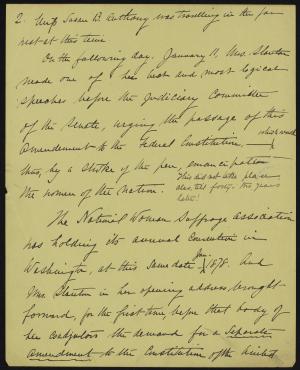 2. Miss Susan B. Anthony was travelling in the far
west at this time
On the following day, January 11, Mrs. Stanton
made one of her best and most logical
speeches before the Judiciary Committee
of the Senate, urging the passage of this
amendment to the Federal Constitution, — which would
thus, by a stroke of the pen, emancipate
the women of the nation. This did not take place
alas, till forty-two years
later!
The National Woman Suffrage Association
was holding its annual Convention in
Washington, at this same date Jan. 1878. And
Mrs Stanton in her opening address, brought
forward, for the first time, before that body of
her coadjutors the demand for a Separate
Amendment to the Constitution of the United